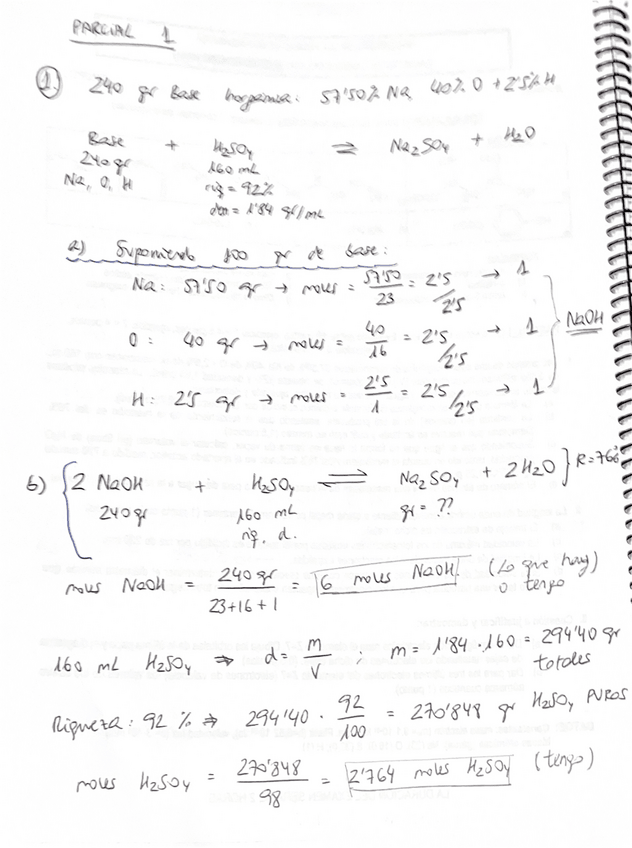 PARCIAL 1
1. 240 gr Base Inorgánica: 57'50% Na, 40% O + 2'5% H
Base + H₂SO₄ ⇌ Na₂SO₄ + H₂O
240 gr 160 mL
Na, O, H riq = 92%
den = 1'84 gr/mL
a) Suponiendo 100 gr de Base:
Na: 57'50 gr → moles = 57'50/23 = 2'5/2'5 → 1
O: 40 gr → moles = 40/16 = 2'5/2'5 → 1 } NaOH
H: 2'5 gr → moles = 2'5/1 = 2'5/2'5 → 1
b) { 2 NaOH + H₂SO₄ ⇌ Na₂SO₄ + 2H₂O } R=76%
240 gr 160 mL gr = ??
riq. d.
moles NaOH = 240 gr/23+16+1 = 6 moles NaOH (Lo que hay) o tengo
160 mL H₂SO₄ ⇒ d = m/V ; m = 1'84 · 160 = 294'40 gr totales
Riqueza: 92 % ⇒ 294'40 · 92/100 = 270'848 gr H₂SO₄ PUROS
moles H₂SO₄ = 270'848/98 = 2'764 moles H₂SO₄ (tengo)